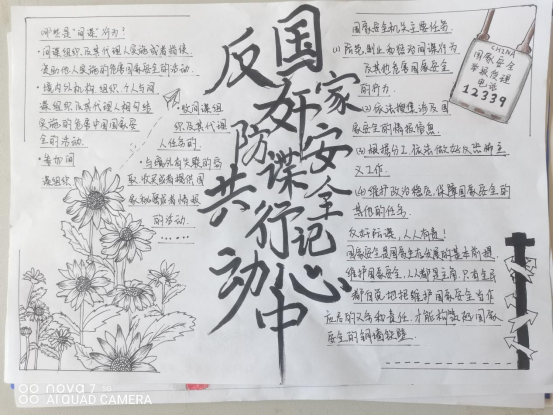 哪些是"间谍"行为?
·间谍组织及其代理人实施或者指使、
资助他人实施的危害国家安全的活动.
·境内外机构、组织、个人与间
谍组织及其代理人相勾结
实施的危害中国国家安
全的活动.
·参加间
谍组织
受间谍组
织及其代理
人任务的
取、收买或者提供国
的活动.
反奸防谍
共行动
国家安全
记心中
国家安全机关主要任务.
及其他危害国家安全
的行为
(2)依法搜集涉及国
家安全的情报信息
(3)根据分工依法做好反恐怖主
义工作.
(4)维护政治稳定,保障国家安全的
其他的任务
反奸防谍,人人有责!
国家安全是国家生存发展的基本前提.
维护国家安全,人人都是主角.只有全民
都自觉地把维护国家安全当作
应尽的义务和责任.才能构筑起国家
安全的铜墙铁壁
CHINA
国家安全
举报受理
电话
12339
nova 7
AI QUAD CAMERA